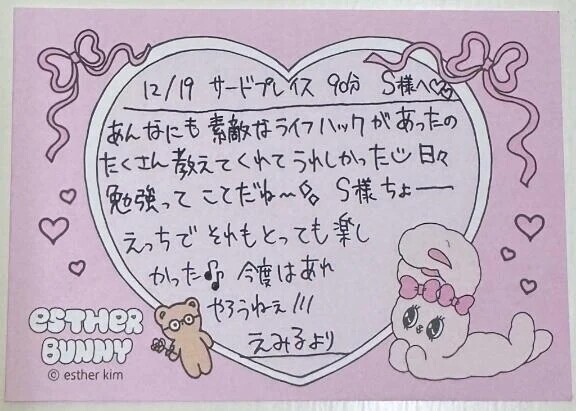 12/19 サードプレイス 90分 S様へ♡♡
あんなにも 素敵なライフハックがあったの
たくさん教えてくれてうれしかった☺ 日々
勉強って ことだね〜 S様ちょー
えっちで それもとっても楽し
かった♪ 今度はあれ
やろうねぇ!!!
えみるより
esther
BUNNY
© esther kim